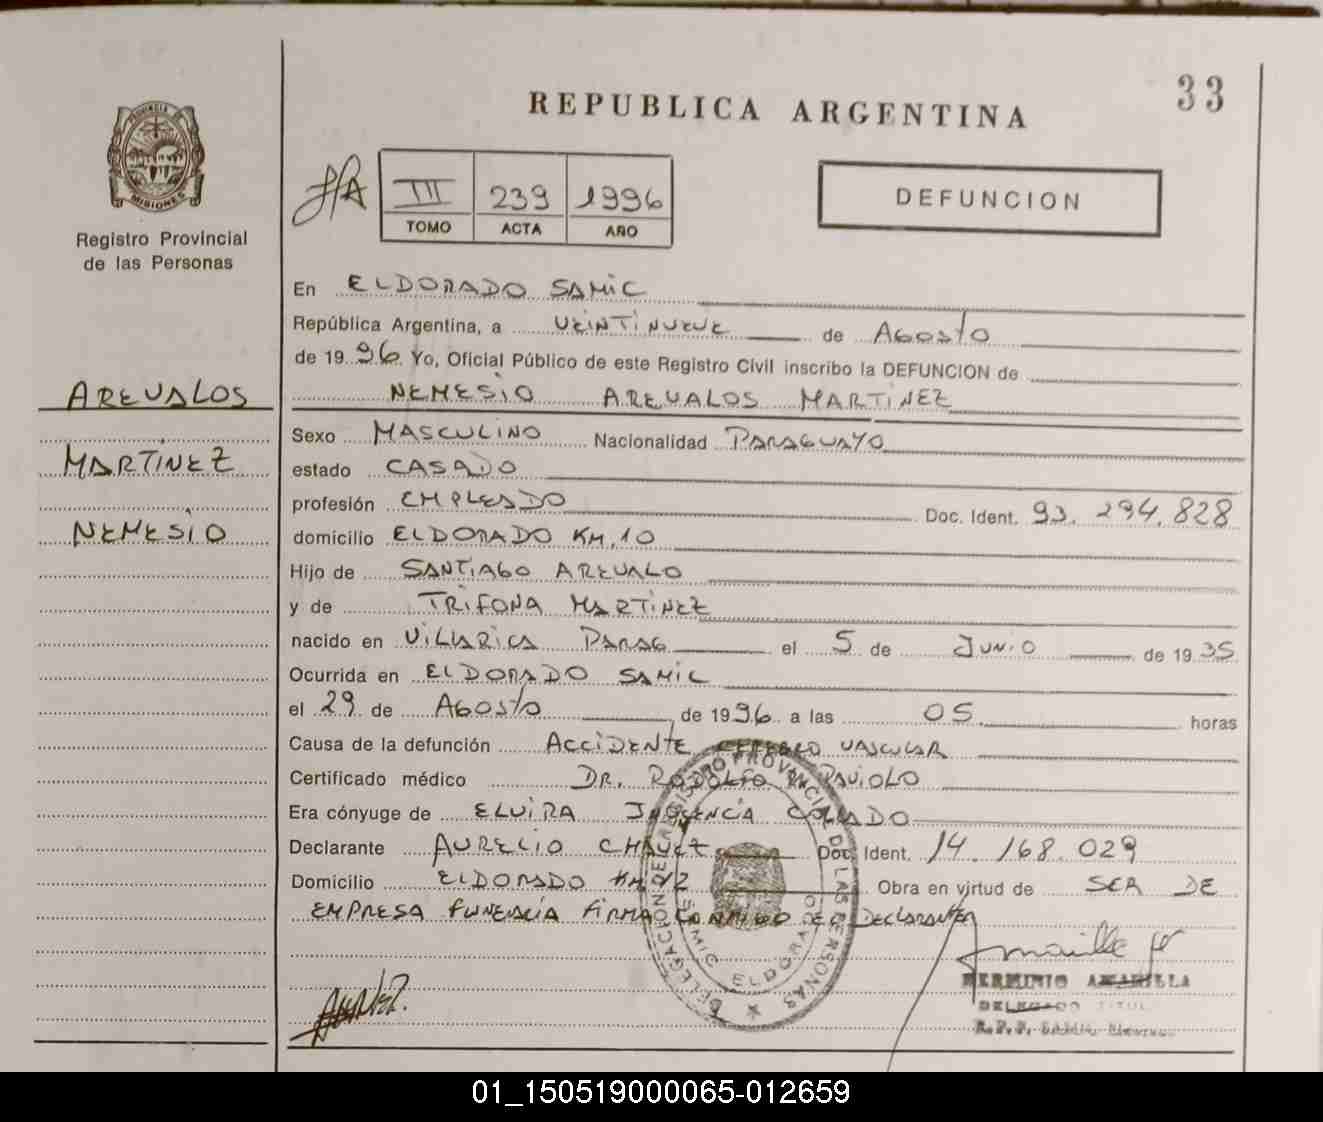 33
REPUBLICA ARGENTINA
PROVINCIA DE
MISIONES
Registro Provincial
de las Personas
III 239 1996
TOMO ACTA AÑO
DEFUNCION
En ELDORADO SAMIC
República Argentina, a VEINTINUEVE de AGOSTO
de 1996. Yo, Oficial Público de este Registro Civil inscribo la DEFUNCION de
NEMESIO AREVALOS MARTINEZ
AREVALOS
MARTINEZ
NEMESIO
Sexo MASCULINO Nacionalidad PARAGUAYO
estado CASADO
profesión EMPLEADO Doc. Ident. 93.294.828
domicilio ELDORADO KM.10
Hijo de SANTIAGO AREVALO
y de TRIFONA MARTINEZ
nacido en VILLARICA PARAG el 5 de JUNIO de 1935
Ocurrida en ELDORADO SAMIC
el 29 de AGOSTO de 1996 a las 05 horas
Causa de la defunción ACCIDENTE CEREBRO VASCULAR
Certificado médico DR. RODOLFO R. PAVIOLO
Era cónyuge de ELVIRA INOCENCIA COLLADO
Declarante AURELIO CHAVEZ Doc. Ident. 14.168.029
Domicilio ELDORADO KM 12 Obra en virtud de SER DE
EMPRESA FUNERARIA FIRMA CONMIGO EL DECLARANTE
DELEGACION DEL REGISTRO PROVINCIAL DE LAS PERSONAS
SAMIC ELDORADO
HERMINIO AMARILLA
DELEGADO TITUL
R.P.P. SAMIC
01_150519000065-012659